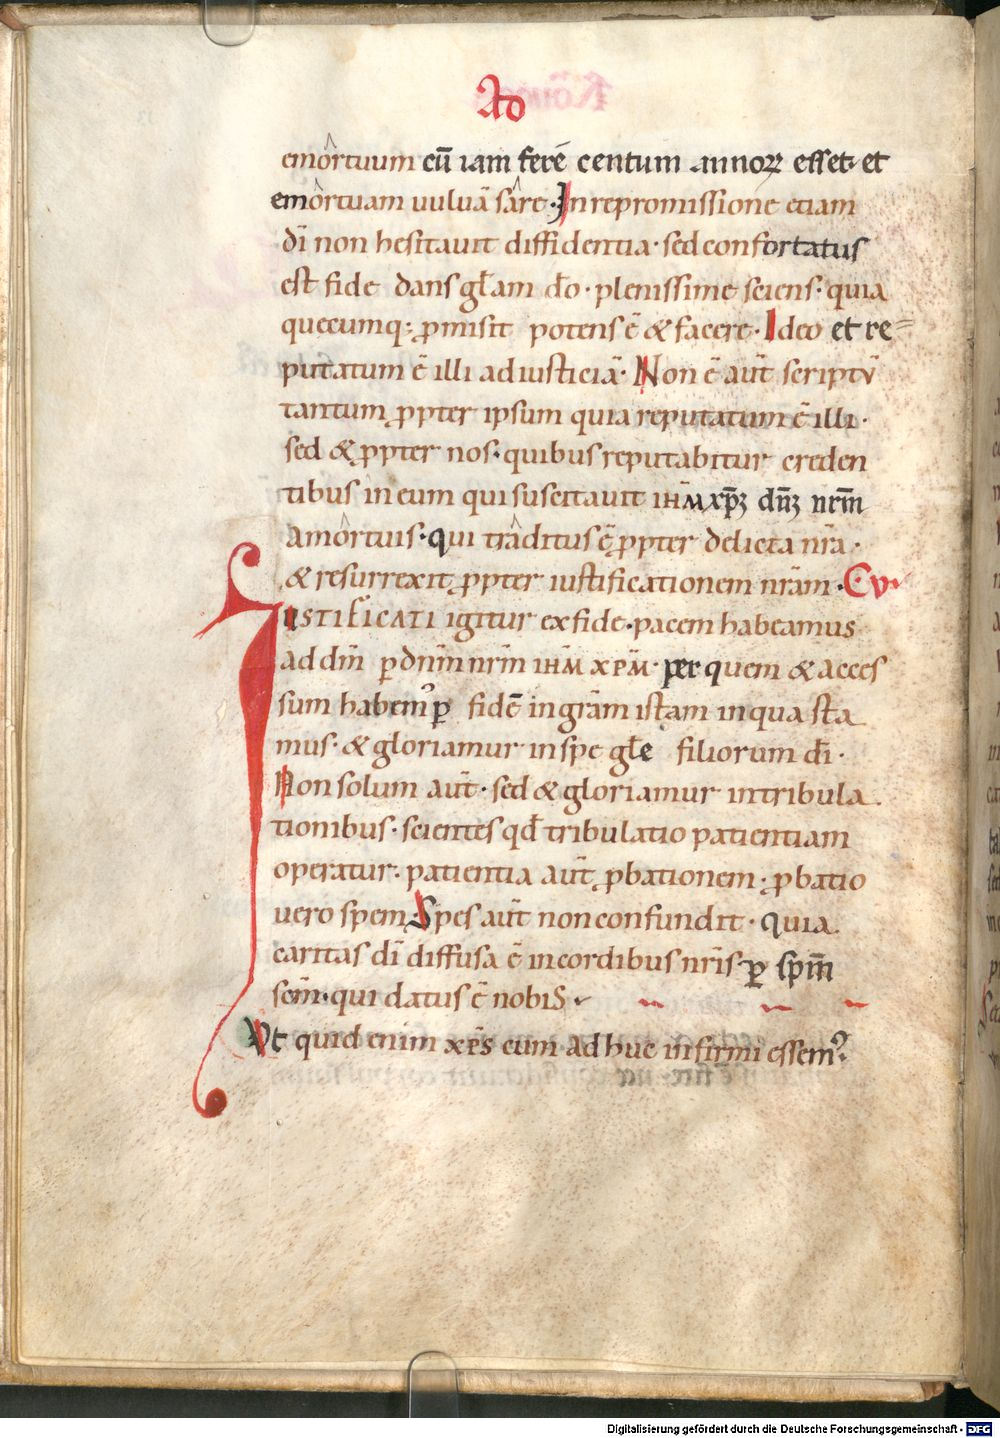 Ad
emortuum cū iam ferē centum annoꝝ esset· et
emortuam uuluā sarę· In repromissione etiam
dī non hesitauit diffidentia· sed confortatus
est fide dans gl̄am dō· plenissime sciens· quia
quecumq; ꝓmisit potens ē & facere· Ideo et re=
putatum ē illi ad iusticiā· Non ē aūt scriptū
tantum ꝓpter ipsum quia reputatum ē illi·
sed & ꝓpter nos· quibus reputabitur creden
tibus in eum qui suscitauit ihm̄ xp̄ꝫ dn̄ꝫ nr̄m
amortuis· qui traditus ē ꝓpter delicta nr̄a·
& resurrexit ꝓpter iustificationem nr̄am· Cv·
IUSTIFICATI igitur ex fide· pacem habeamus
ad dm̄ ꝑ dnm̄ nrm̄ ihm̄ xpm̄· per quem & acces
sum habemꝰ ꝑ fidē in grām istam in qua sta
mus· & gloriamur in spe gl̄e filiorum dī·
Non solum aūt· sed & gloriamur in tribula
tionibus· scientes qđ tribulatio patientiam
operatur· patientia aūt ꝓbationem· ꝓbatio
uero spem· Spes aūt non confundit· quia
caritas dī diffusa ē in cordibus nrīs ꝑ spm̄
scm̄· qui datus ē nobis
Vt quid enim xp̄s cum adhuc infirmi essemꝰ·
Digitalisierung gefördert durch die Deutsche Forschungsgemeinschaft - DFG